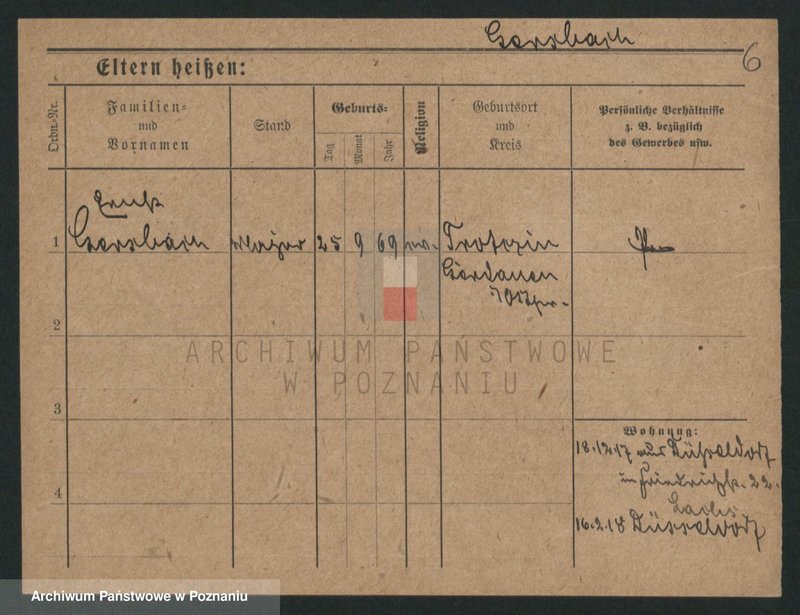 Gersbach
6
Eltern heißen:
Ordn.-Nr.
Familien-
und
Vornamen
Stand
Geburts-
Tag
Monat
Jahr
Religion
Geburtsort
und
Kreis
Persönliche Verhältnisse
z. B. bezüglich
des Gewerbes usw.
Ernst
1 Gersbach Major 25 9 69 ev. Trotozin
Gerdauen
/Ostpr.
2
3
4
Wohnung:
18.12.17 aus Düsseldorf
in Friedrichstr. 22.
16.2.18 Düsseldorf
ARCHIWUM PAŃSTWOWE
W POZNANIU
Archiwum Państwowe w Poznaniu